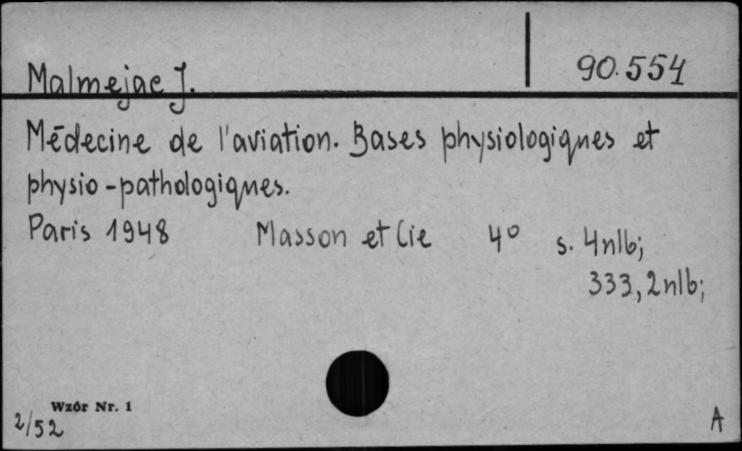 Malmejac J.
90.554
Médecine de l'aviation. Bases physiologiques et
physio-pathologiques.
Paris 1948 Masson et Cie 4° s. 4nlb;
333, 2nlb;
Wzór Nr. 1
2/52
A